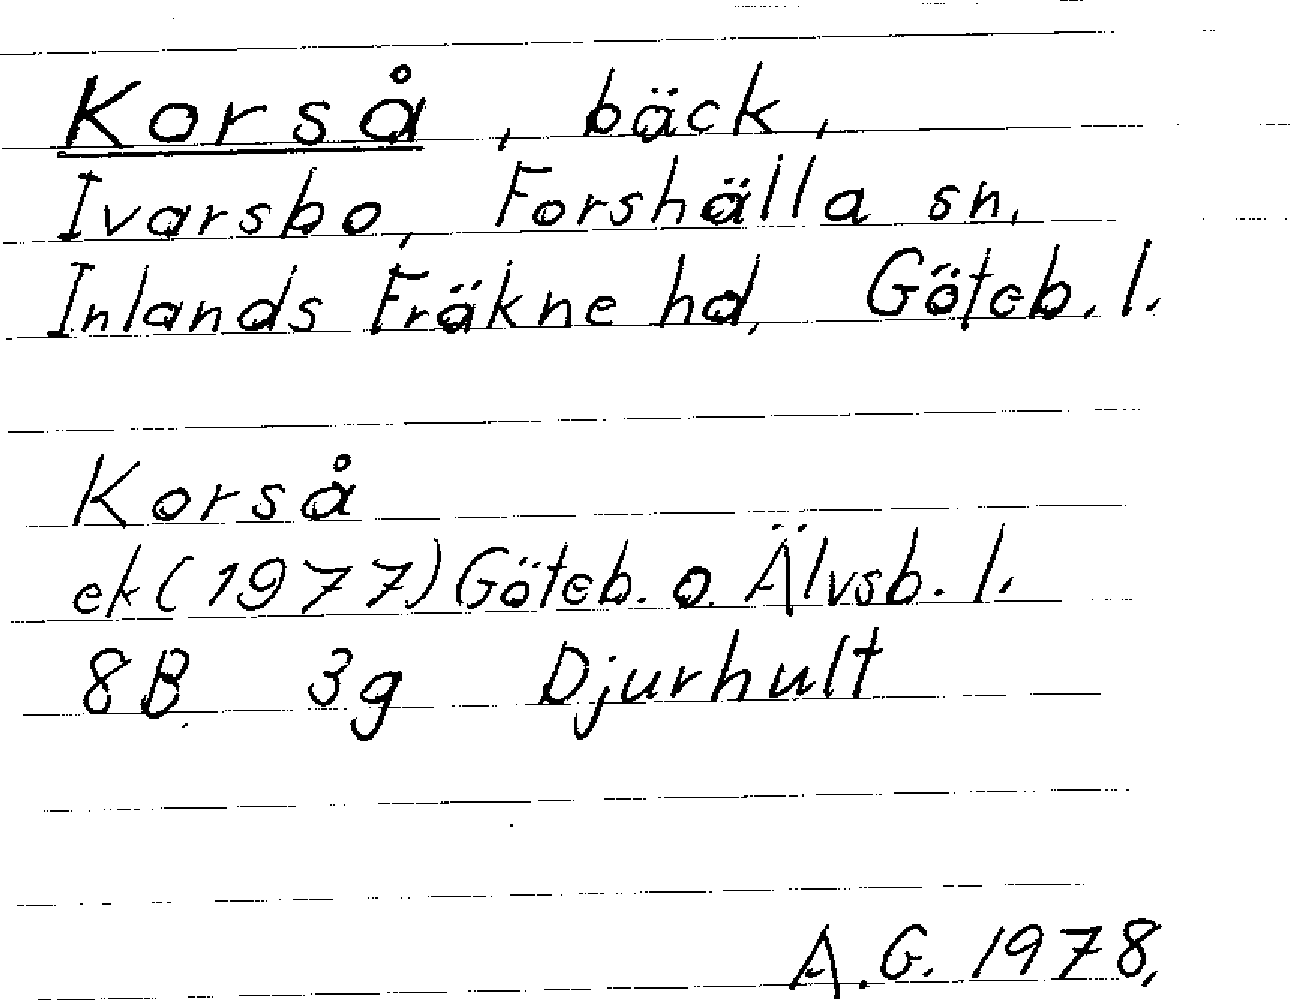 Korså, bäck,
Ivarsbo, Forshälla sn,
Inlands Fräkne hd, Göteb. l.
Korså
ek (1977) Göteb. o. Älvsb. l.
8B 3g Djurhult
A.G. 1978,